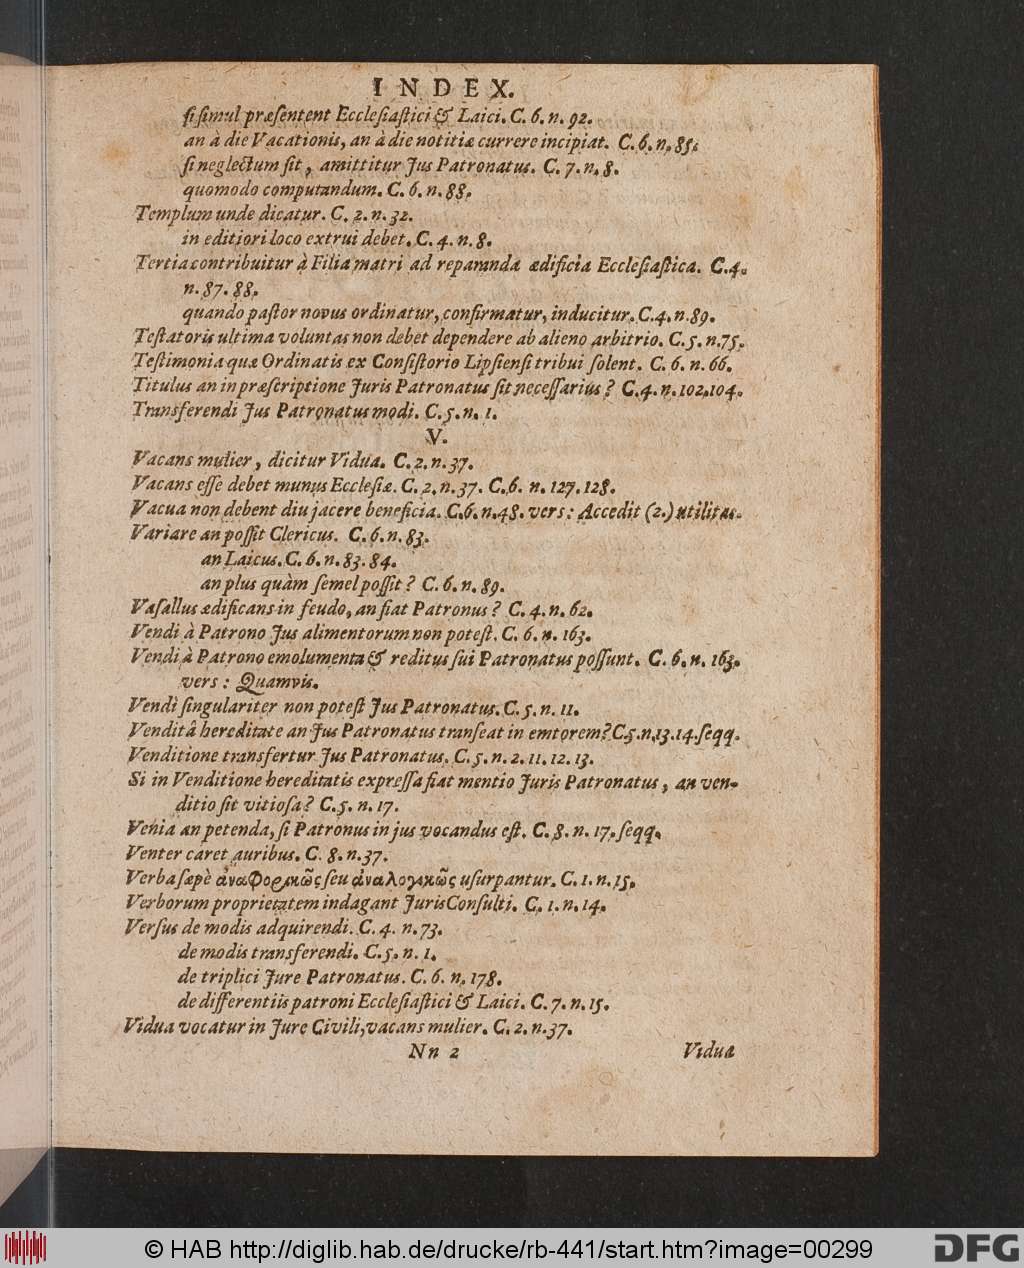 INDEX.
ſi ſimul præſentent Eccleſiaſtici & Laici. C. 6. n. 92.
an à die Vacationis, an à die notitiæ currere incipiat. C. 6. n. 85.
ſi neglectum ſit, amittitur Jus Patronatus. C. 7. n. 8.
quomodo computandum. C. 6. n. 88.
Templum unde dicatur. C. 2. n. 32.
in editiori loco extrui debet. C. 4. n. 8.
Tertia contribuitur à Filia matri ad reparanda ædificia Eccleſiaſtica. C. 4.
n. 87. 88.
quando paſtor novus ordinatur, confirmatur, inducitur. C. 4. n. 89.
Teſtatoris ultima voluntas non debet dependere ab alieno arbitrio. C. 5. n. 75.
Teſtimonia quæ Ordinatis ex Conſiſtorio Lipſienſi tribui ſolent. C. 6. n. 66.
Titulus an in præſcriptione Juris Patronatus ſit neceſſarius? C. 4. n. 102. 104.
Transferendi Jus Patronatus modi. C. 5. n. 1.
V.
Vacans mulier, dicitur Vidua. C. 2. n. 37.
Vacans eſſe debet munus Eccleſiæ. C. 2. n. 37. C. 6. n. 127. 128.
Vacua non debent diu jacere beneficia. C. 6. n. 48. vers: Accedit (2.) utilitas.
Variare an poſſit Clericus. C. 6. n. 83.
an Laicus. C. 6. n. 83. 84.
an plus quàm ſemel poſſit? C. 6. n. 89.
Vaſallus ædificans in feudo, an fiat Patronus? C. 4. n. 62.
Vendi à Patrono Jus alimentorum non poteſt. C. 6. n. 163.
Vendi à Patrono emolumenta & reditus ſui Patronatus poſſunt. C. 6. n. 163.
vers: Quamvis.
Vendi ſingulariter non poteſt Jus Patronatus. C. 5. n. 11.
Venditâ hereditate an Jus Patronatus tranſeat in emtorem? C. 5. n. 13. 14. ſeqq.
Venditione transfertur Jus Patronatus. C. 5. n. 2. 11. 12. 13.
Si in Venditione hereditatis expreſſa fiat mentio Juris Patronatus, an ven-
ditio ſit vitioſa? C. 5. n. 17.
Venia an petenda, ſi Patronus in jus vocandus eſt. C. 8. n. 17. ſeqq.
Venter caret auribus. C. 8. n. 37.
Verba ſæpè ἀναφορικῶς ſeu ἀναλογικῶς uſurpantur. C. 1. n. 15.
Verborum proprietatem indagant JurisConſulti. C. 1. n. 14.
Verſus de modis adquirendi. C. 4. n. 73.
de modis transferendi. C. 5. n. 1.
de triplici Jure Patronatus. C. 6. n. 178.
de differentiis patroni Eccleſiaſtici & Laici. C. 7. n. 15.
Vidua vocatur in Jure Civili, vacans mulier. C. 2. n. 37.
Nn 2 Viduæ
© HAB http://diglib.hab.de/drucke/rb-441/start.htm?image=00299
DFG